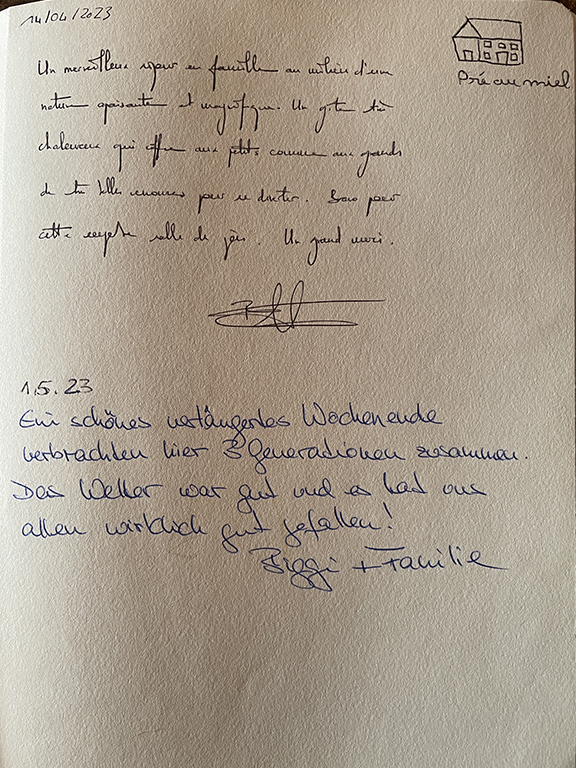 14/04/2023
Pré au miel
Un merveilleux séjour en famille au milieu d'une
nature apaisante et magnifique. Un gîte très
chaleureux qui offre aux petits comme aux grands
de très belles pour se . Bravo pour
cette superbe salle de jeu. Un grand merci.
1.5.23
Ein schönes verlängertes Wochenende
verbrachten hier 3 Generationen zusammen.
Das Wetter war gut und es hat uns
allen wirklich gut gefallen!
Biggi + Familie